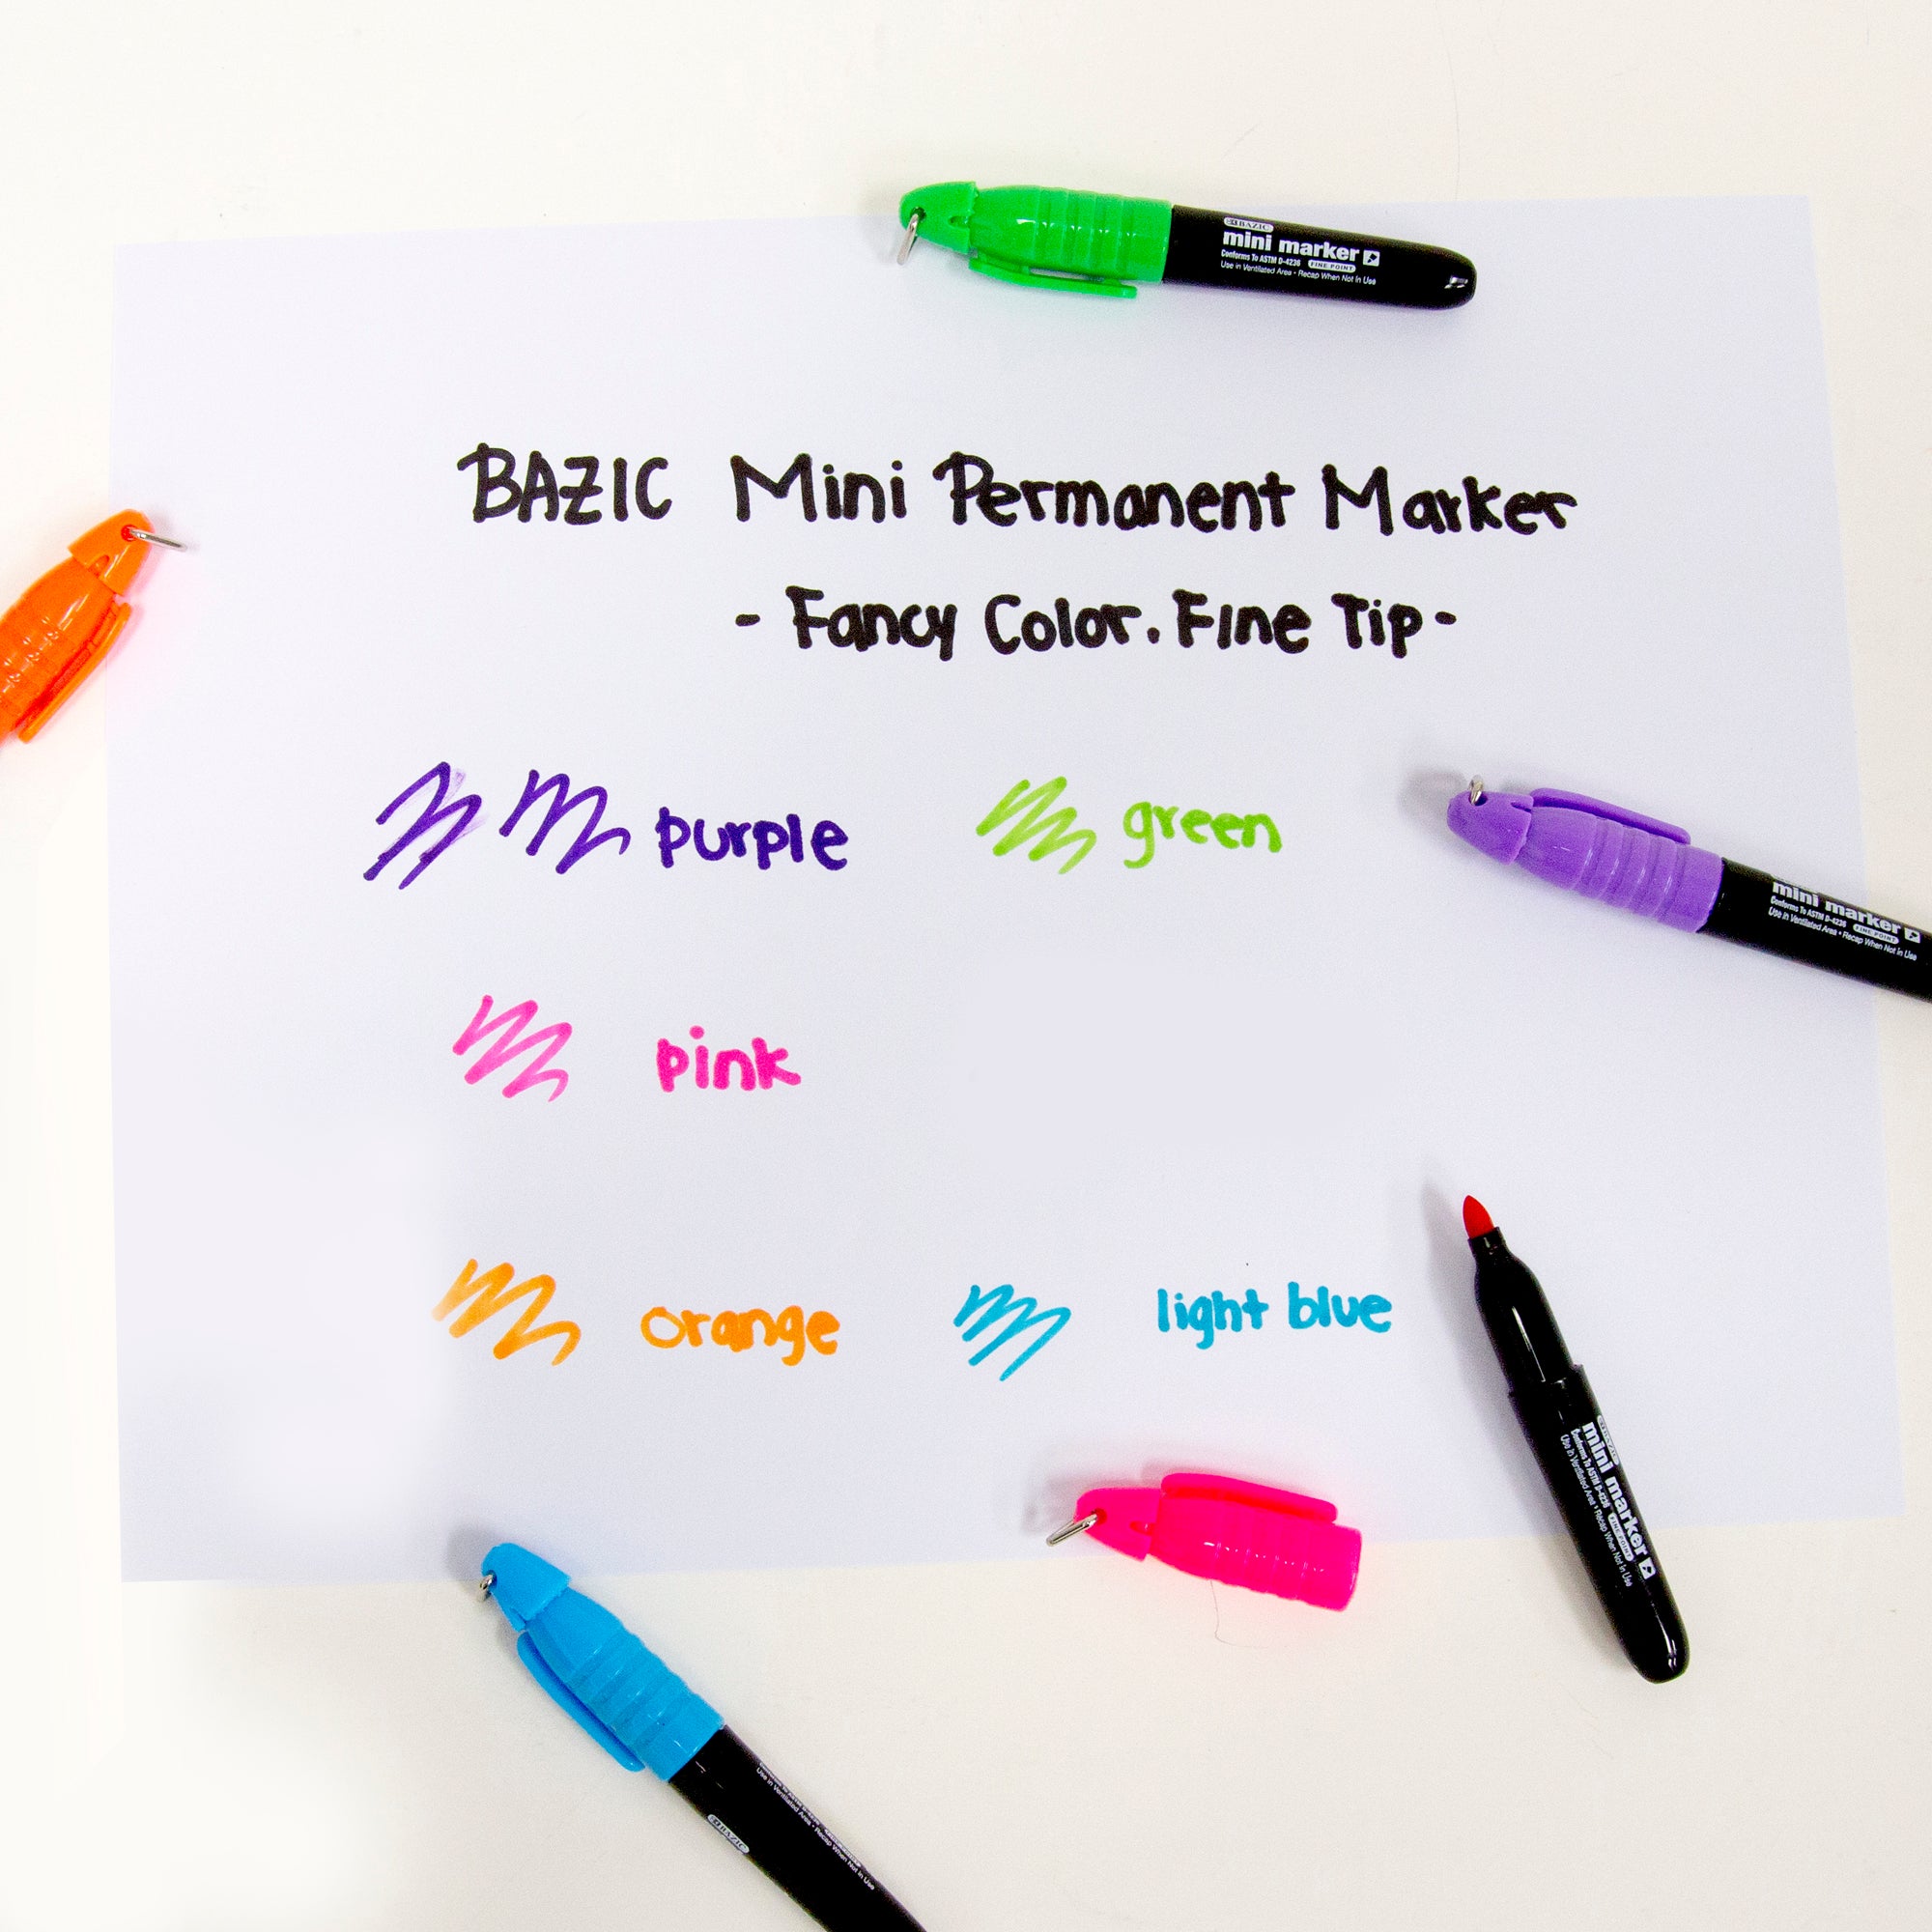 BAZIC
mini marker
Conforms To ASTM D-4236 FINE POINT
Use in Ventilated Area • Recap When Not In Use
BAZIC Mini Permanent Marker
- Fancy Color. Fine Tip -
purple green
mini marker
Conforms To ASTM D-4236 FINE POINT
Use in Ventilated Area • Recap When Not in Use
pink
orange light blue
BAZIC
mini marker
Conforms To ASTM D-4236 FINE POINT
Use in Ventilated Area • Recap When Not in Use
Use in Ventilated Area • Recap When Not in Use
BAZIC